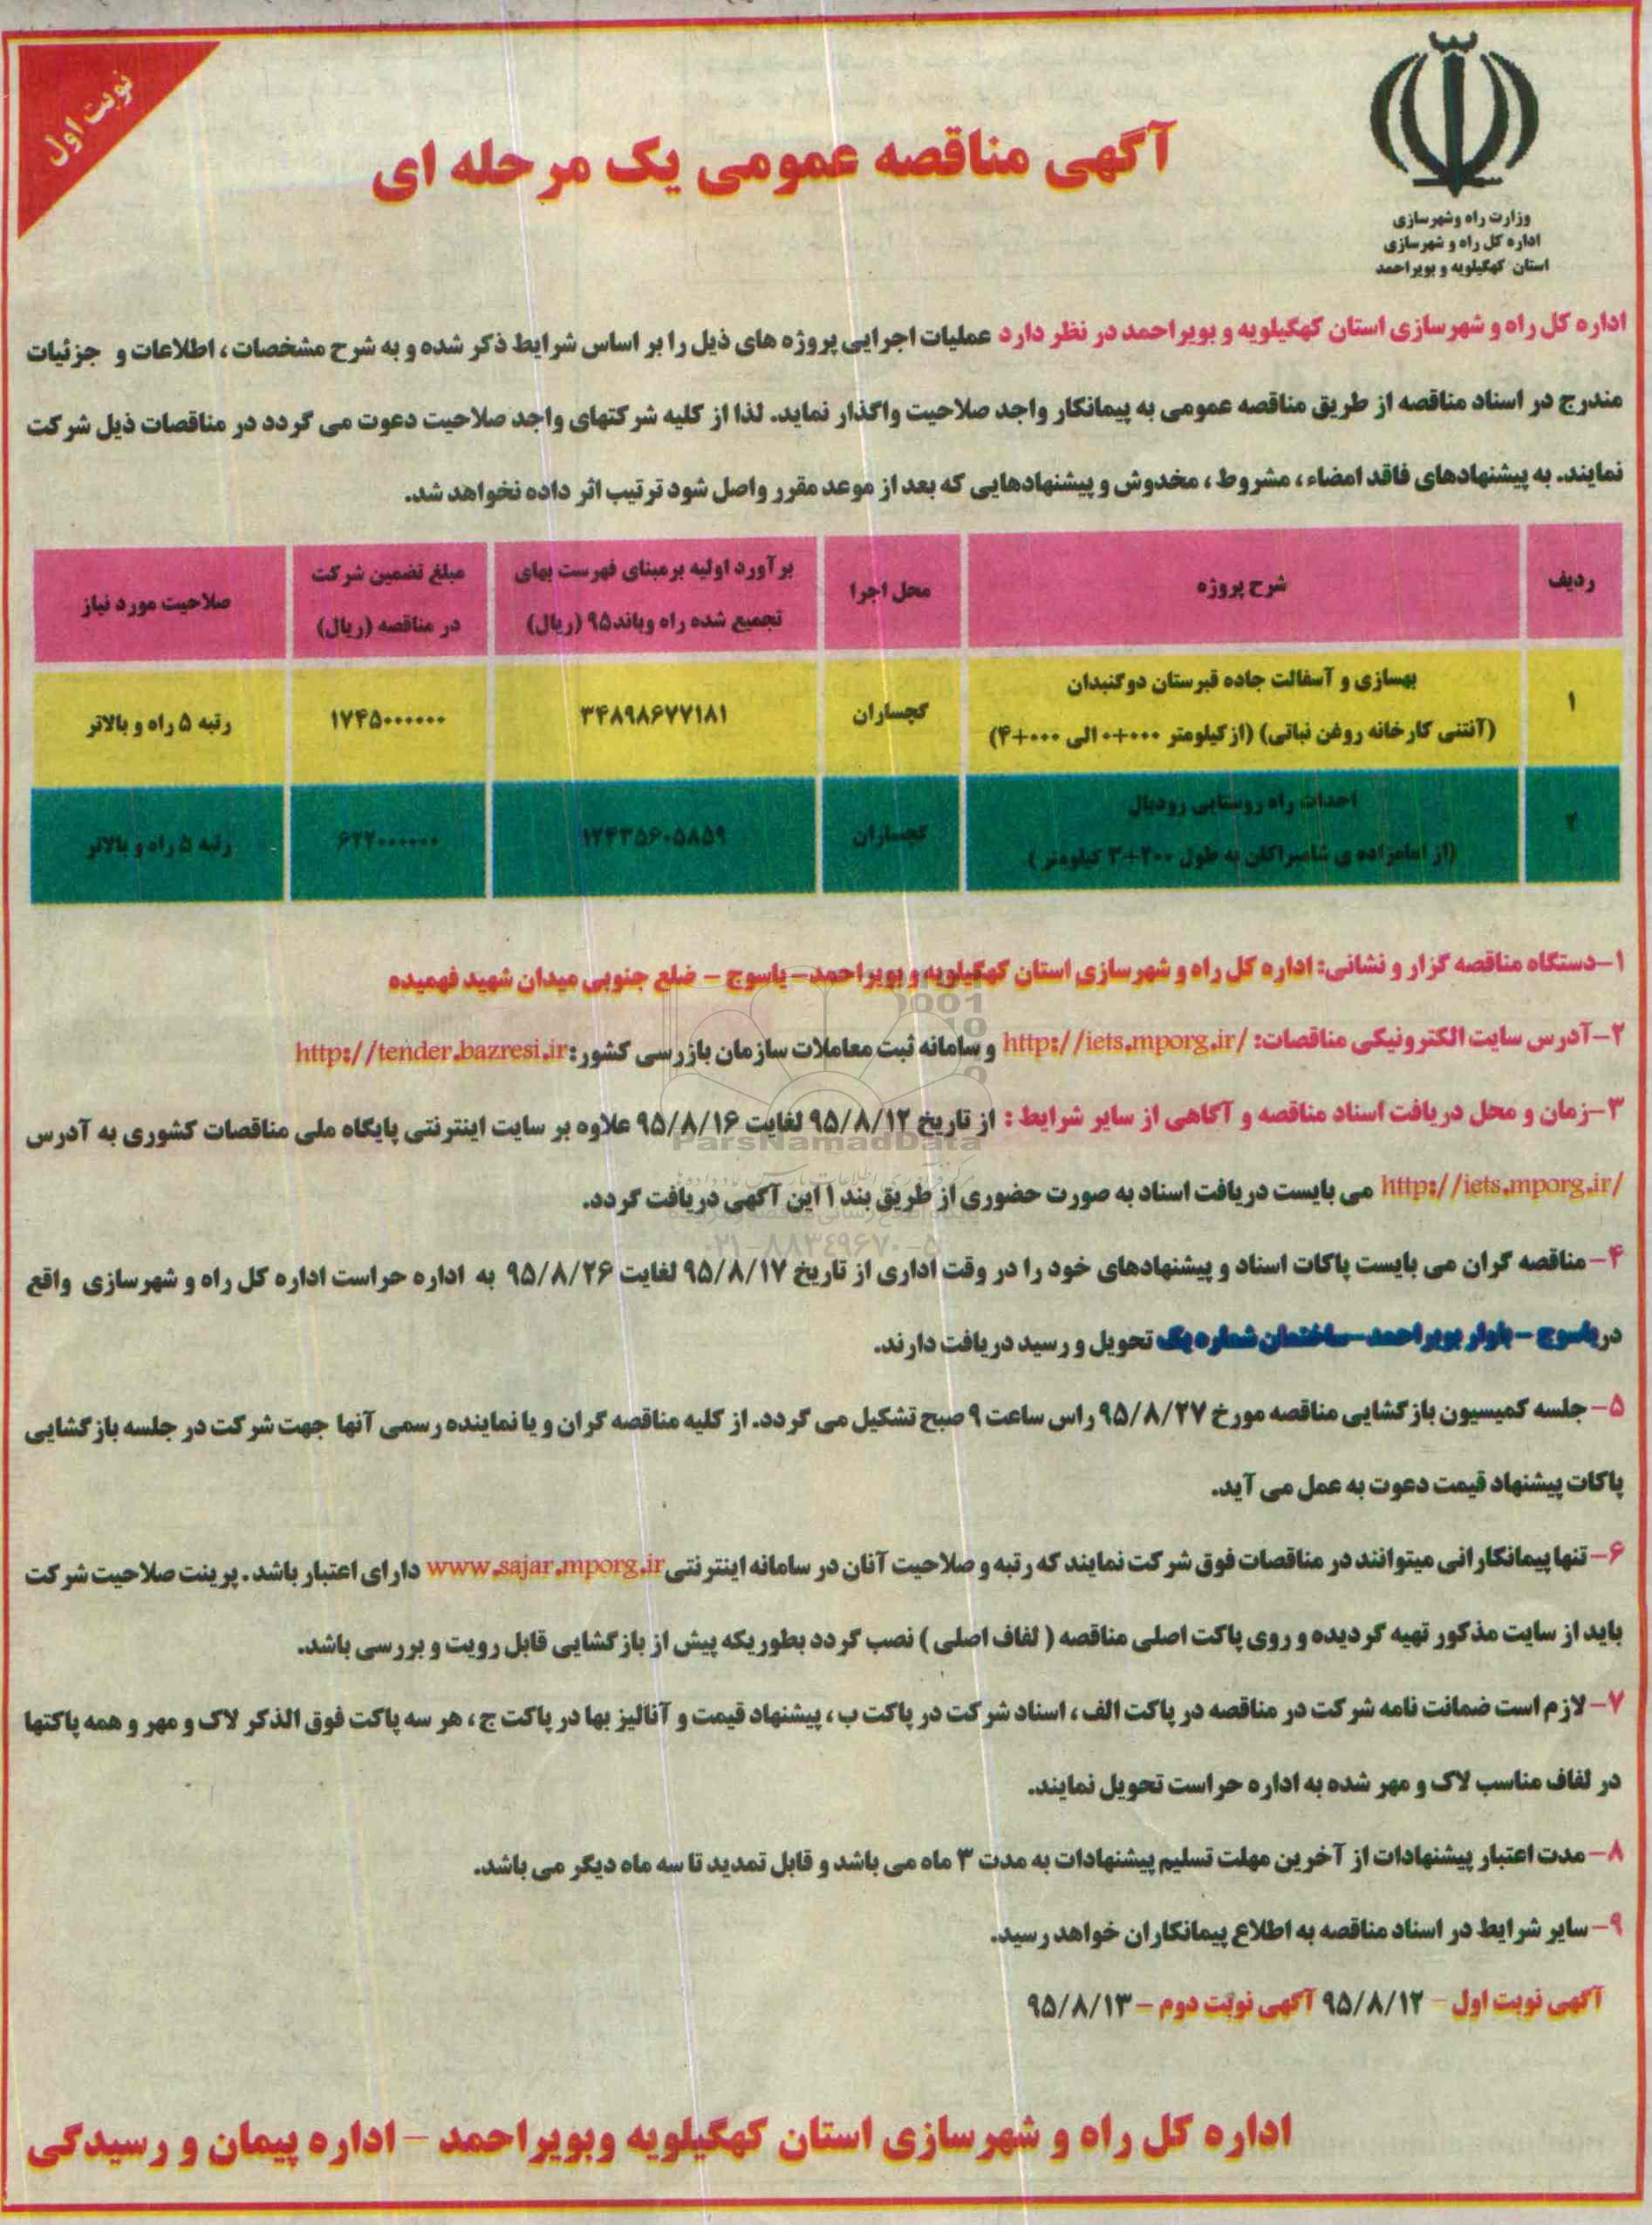 نوبت اول
آگهی مناقصه عمومی یک مرحله ای
وزارت راه وشهرسازی
اداره کل راه و شهرسازی
استان کهگیلویه و بویراحمد
اداره کل راه و شهرسازی استان کهگیلویه و بویراحمد در نظر دارد عملیات اجرایی پروژه های ذیل را بر اساس شرایط ذکر شده و به شرح مشخصات ، اطلاعات و جزئیات
مندرج در اسناد مناقصه از طریق مناقصه عمومی به پیمانکار واجد صلاحیت واگذار نماید. لذا از کلیه شرکتهای واجد صلاحیت دعوت می گردد در مناقصات ذیل شرکت
نمایند. به پیشنهادهای فاقد امضاء ، مشروط ، مخدوش و پیشنهادهایی که بعد از موعد مقرر واصل شود ترتیب اثر داده نخواهد شد.
ردیف
شرح پروژه
محل اجرا
برآورد اولیه برمبنای فهرست بهای
تجمیع شده راه وباند۹۵ (ریال)
مبلغ تضمین شرکت
در مناقصه (ریال)
صلاحیت مورد نیاز
۱
بهسازی و آسفالت جاده قبرستان دوگنبدان
(آنتنی کارخانه روغن نباتی) (از کیلومتر ۰۰۰+۰ الی ۰۰۰+۴)
گچساران
۳۴۸۹۸۶۷۷۱۸۱
۱۷۴۵۰۰۰۰۰۰
رتبه ۵ راه و بالاتر
۲
احداث راه روستایی رودبال
(از امامزاده ی شامبراکان به طول ۲۰۰+۳ کیلومتر )
گچساران
۱۲۴۳۵۶۰۵۸۵۹
۶۲۲۰۰۰۰۰۰
رتبه ۵ راه و بالاتر
۱-دستگاه مناقصه گزار و نشانی: اداره کل راه و شهرسازی استان کهگیلویه و بویراحمد - یاسوج - ضلع جنوبی میدان شهید فهمیده
۲-آدرس سایت الکترونیکی مناقصات: http://iets.mporg.ir/ و سامانه ثبت معاملات سازمان بازرسی کشور: http://tender.bazresi.ir
۳-زمان و محل دریافت اسناد مناقصه و آگاهی از سایر شرایط : از تاریخ ۹۵/۸/۱۲ لغایت ۹۵/۸/۱۶ علاوه بر سایت اینترنتی پایگاه ملی مناقصات کشوری به آدرس
http://iets.mporg.ir/ می بایست دریافت اسناد به صورت حضوری از طریق بند ۱ این آگهی دریافت گردد.
ParsNamadData
۰۲۱-۸۸۳۴۹۶۷۰-۵
۴- مناقصه گران می بایست پاکات اسناد و پیشنهادهای خود را در وقت اداری از تاریخ ۹۵/۸/۱۷ لغایت ۹۵/۸/۲۶ به اداره حراست اداره کل راه و شهرسازی واقع
در یاسوج - بلوار بویراحمد - ساختمان شماره یک تحویل و رسید دریافت دارند.
۵- جلسه کمیسیون بازگشایی مناقصه مورخ ۹۵/۸/۲۷ راس ساعت ۹ صبح تشکیل می گردد. از کلیه مناقصه گران و یا نماینده رسمی آنها جهت شرکت در جلسه بازگشایی
پاکات پیشنهاد قیمت دعوت به عمل می آید.
۶- تنها پیمانکارانی میتوانند در مناقصات فوق شرکت نمایند که رتبه و صلاحیت آنان در سامانه اینترنتی www.sajar.mporg.ir دارای اعتبار باشد . پرینت صلاحیت شرکت
باید از سایت مذکور تهیه گردیده و روی پاکت اصلی مناقصه ( لفاف اصلی ) نصب گردد بطوریکه پیش از بازگشایی قابل رویت و بررسی باشد.
۷- لازم است ضمانت نامه شرکت در مناقصه در پاکت الف ، اسناد شرکت در پاکت ب ، پیشنهاد قیمت و آنالیز بها در پاکت ج ، هر سه پاکت فوق الذکر لاک و مهر و همه پاکتها
در لفاف مناسب لاک و مهر شده به اداره حراست تحویل نمایند.
۸- مدت اعتبار پیشنهادات از آخرین مهلت تسلیم پیشنهادات به مدت ۳ ماه می باشد و قابل تمدید تا سه ماه دیگر می باشد.
۹- سایر شرایط در اسناد مناقصه به اطلاع پیمانکاران خواهد رسید.
آگهی نوبت اول - ۹۵/۸/۱۲ آگهی نوبت دوم - ۹۵/۸/۱۳
اداره کل راه و شهرسازی استان کهگیلویه وبویراحمد - اداره پیمان و رسیدگی